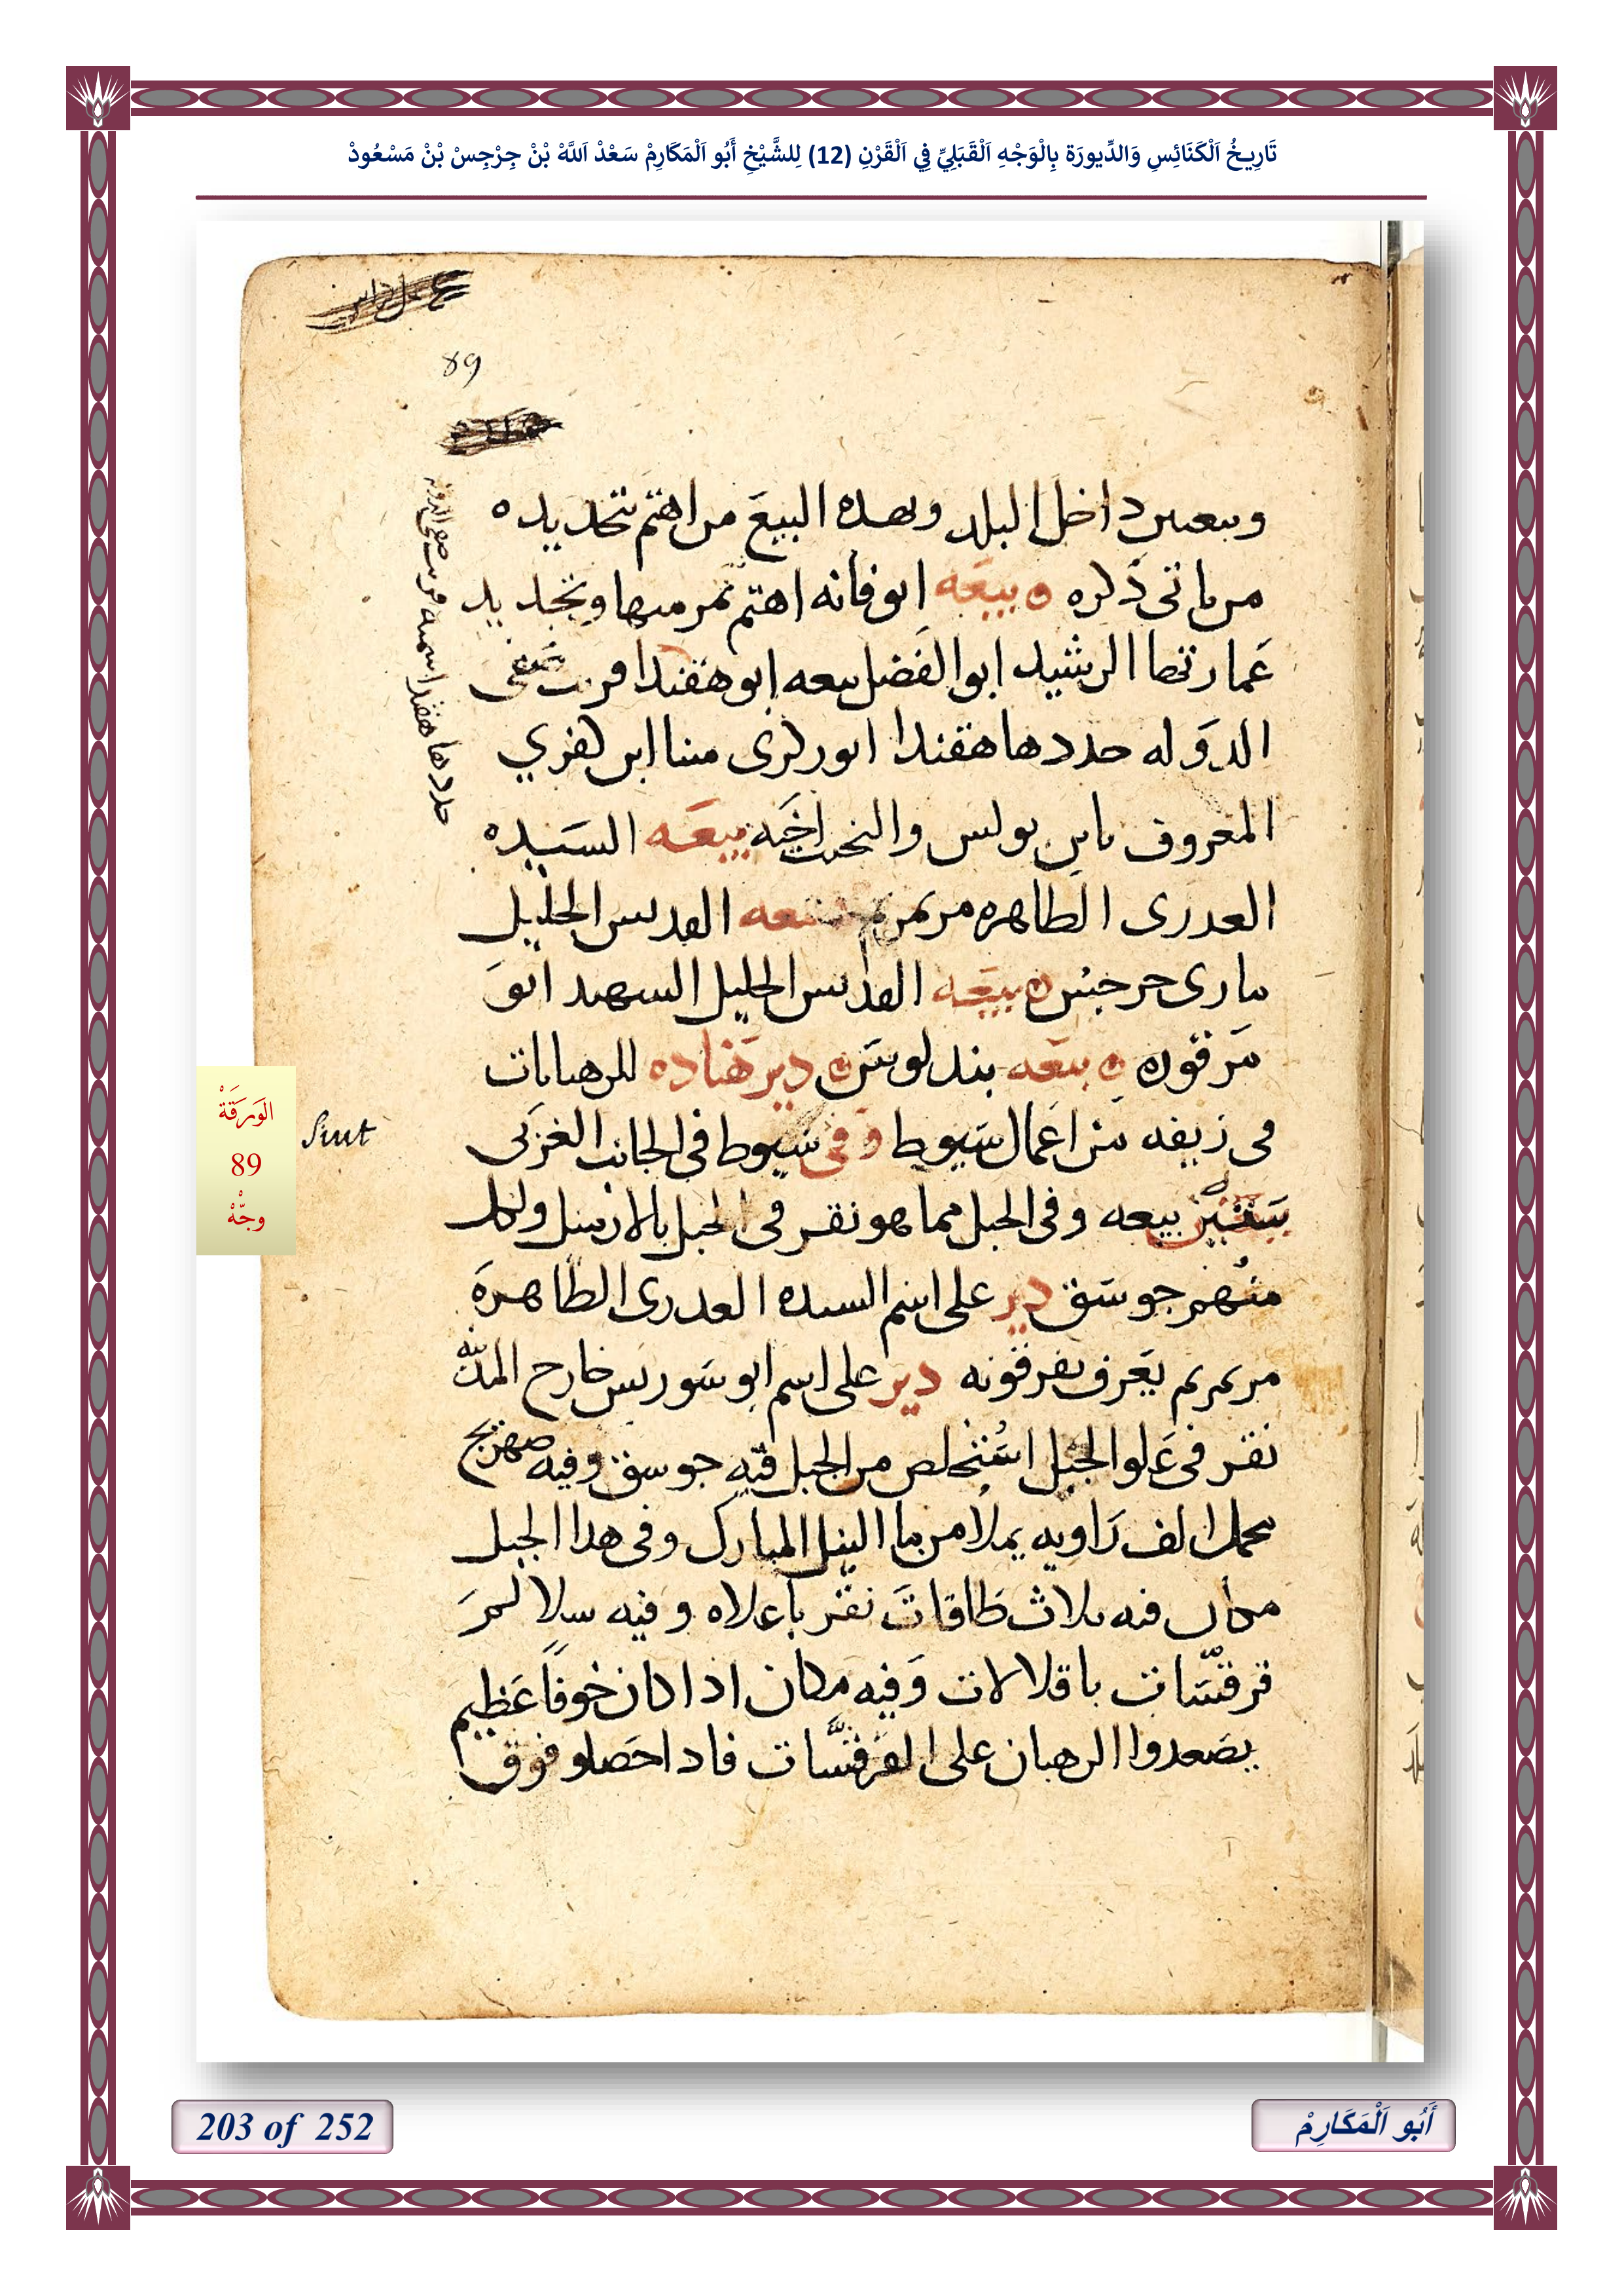 تَارِيخُ اَلْكَنَائِسِ وَالدِّيورَة بِالْوَجْهِ اَلْقَبَلِيِّ فِي اَلْقَرْنِ (12) لِلشَّيْخِ أَبُو اَلْمَكَارِمْ سَعْدْ اَللَّهْ بْنْ جِرْجِسْ بْنْ مَسْعُودْ
89
داخل البلد وبهده البيع من اهتم بتجديده
من ياتى ذكره بيعَه ابوفانه اهتم بمرمتها وتجديد
عَمارتها الرشيد ابو الفَضل بيعه ابو هقندا
الدَوله جددها هقندا مننا ابن
المعروف بابن بولس اخيَه بيعَه السَيده
العدرى الطاهره مرتمريم بيعه القديس الجليل
مارى جرجيس بيعَه القديس الجليل الشهيد ابوَ
مَرقوره بيعَه دير للرهبانات
فى زيفه من اعمال سَيوط وفى سيوط فى الجانب الغربَى
ستين بيعه وفى الجبل مما هو نقر فى الجبل بالازميل ولكل
منهم جوسَق دير على اسم السيده العدرى الطاهرهَ
مرتمريم يعَرف بقرفونه دير على اسم ابو سَوريس خارج المدينه
نقر فى عَلو الجبل استُخلص من الجبل فيه جوسق وفيه صهريج
يحمل الف رَاويه يملا من ما النيل المبارك وفى هدا الجبل
مكان فيه ثلاث طاقاتَ نقر باعلاه وفيه سلالمَ
باقلالات وَفيه مكان اذا كان خوفاً عَظيم
يصَعدوا الرهبان على فادا احصَلو فوق
الوَرَقَةْ
89
وجّهْ
Siut
203 of 252
أَبُو اَلْمَكَارِمْ